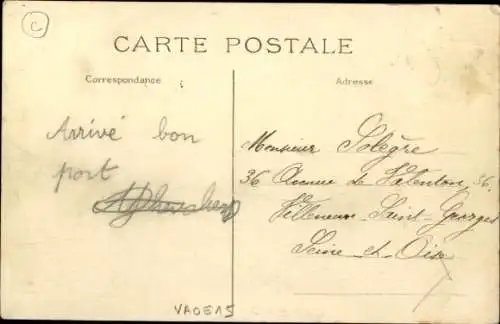 C
CARTE POSTALE
Correspondance
Adresse
Arrivé bon
port
Monsieur Solègre
36 Avenue de Valenton, 36,
Villeneuve-Saint-Georges
Seine-et-Oise
VAOE15